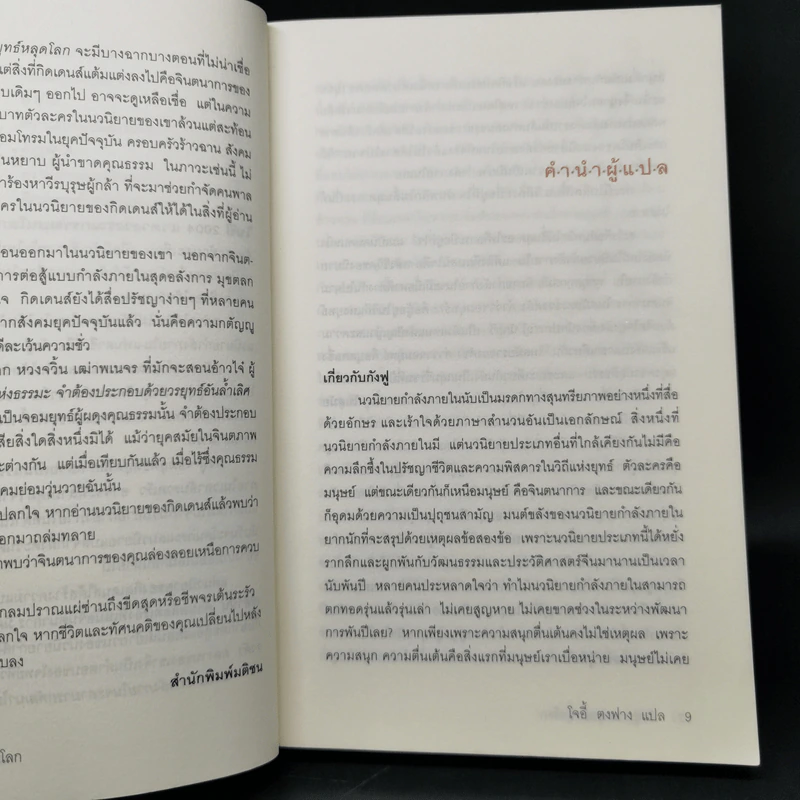 ยุทธ์หลุดโลก จะมีบางฉากบางตอนที่ไม่น่าเชื่อ
แต่สิ่งที่กิดเดนส์แต้มแต่งลงไปคือจินตนาการของ
บเดิมๆ ออกไป อาจจะดูเหลือเชื่อ แต่ในความ
บาทตัวละครในนวนิยายของเขาล้วนแต่สะท้อน
อมโทรมในยุคปัจจุบัน ครอบครัวร้าวฉาน สังคม
นหยาบ ผู้นำขาดคุณธรรม ในภาวะเช่นนี้ ไม่
าร้องหาวีรบุรุษผู้กล้า ที่จะมาช่วยกำจัดคนพาล
ครในนวนิยายของกิดเดนส์ให้ได้ในสิ่งที่ผู้อ่าน
อนออกมาในนวนิยายของเขา นอกจากจินต-
การต่อสู้แบบกำลังภายในสุดอลังการ มุขตลก
จ กิดเดนส์ยังได้สื่อปรัชญาง่ายๆ ที่หลายคน
ากสังคมยุคปัจจุบันแล้ว นั่นคือความกตัญญู
ดีละเว้นความชั่ว
ก หวงจวิ้น เฒ่าพเนจร ที่มักจะสอนอ้าวไจ๋ ผู้
ห่งธรรมะ จำต้องประกอบด้วยวรยุทธ์อันล้ำเลิศ
เป็นจอมยุทธ์ผู้ผดุงคุณธรรมนั้น จำต้องประกอบ
สียสิ่งใดสิ่งหนึ่งมิได้ แม้ว่ายุคสมัยในจินตภาพ
ะต่างกัน แต่เมื่อเทียบกันแล้ว เมื่อไร้ซึ่งคุณธรรม
คมย่อมวุ่นวายฉันนั้น
ปลกใจ หากอ่านนวนิยายของกิดเดนส์แล้วพบว่า
อกมาถล่มทลาย
าพบว่าจินตนาการของคุณล่องลอยเหนือการควบ
กลมปราณแผ่ซ่านถึงขีดสุดหรือชีพจรเต้นระรัว
ปลกใจ หากชีวิตและทัศนคติของคุณเปลี่ยนไปหลัง
บลง
สำนักพิมพ์มติชน
โลก
คำ·นำ·ผู้·แ·ป·ล
เกี่ยวกับกังฟู
นวนิยายกำลังภายในนับเป็นมรดกทางสุนทรียภาพอย่างหนึ่งที่สื่อ
ด้วยอักษร และเร้าใจด้วยภาษาสำนวนอันเป็นเอกลักษณ์ สิ่งหนึ่งที่
นวนิยายกำลังภายในมี แต่นวนิยายประเภทอื่นที่ใกล้เคียงกันไม่มีคือ
ความลึกซึ้งในปรัชญาชีวิตและความพิสดารในวิถีแห่งยุทธ์ ตัวละครคือ
มนุษย์ แต่ขณะเดียวกันก็เหนือมนุษย์ คือจินตนาการ และขณะเดียวกัน
ก็อุดมด้วยความเป็นปุถุชนสามัญ มนต์ขลังของนวนิยายกำลังภายใน
ยากนักที่จะสรุปด้วยเหตุผลข้อสองข้อ เพราะนวนิยายประเภทนี้ได้หยั่ง
รากลึกและผูกพันกับวัฒนธรรมและประวัติศาสตร์จีนมานานเป็นเวลา
นับพันปี หลายคนประหลาดใจว่า ทำไมนวนิยายกำลังภายในสามารถ
ตกทอดรุ่นแล้วรุ่นเล่า ไม่เคยสูญหาย ไม่เคยขาดช่วงในระหว่างพัฒนา
การพันปีเลย? หากเพียงเพราะความสนุกตื่นเต้นคงไม่ใช่เหตุผล เพราะ
ความสนุก ความตื่นเต้นคือสิ่งแรกที่มนุษย์เราเบื่อหน่าย มนุษย์ไม่เคย
โจอี้ ตงฟาง แปล 9